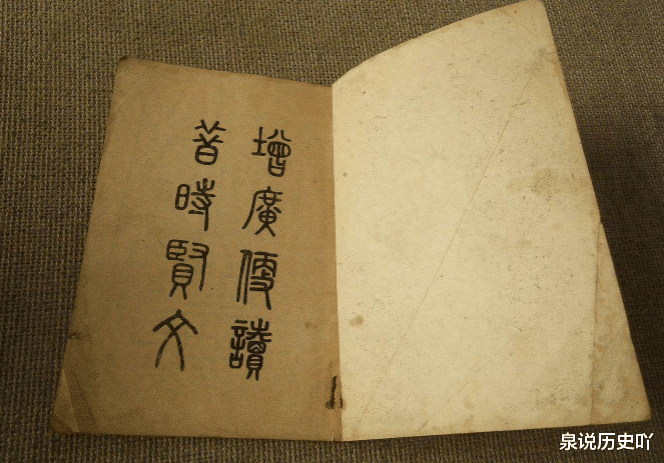 增廣便讀
昔時賢文
泉说历史吖